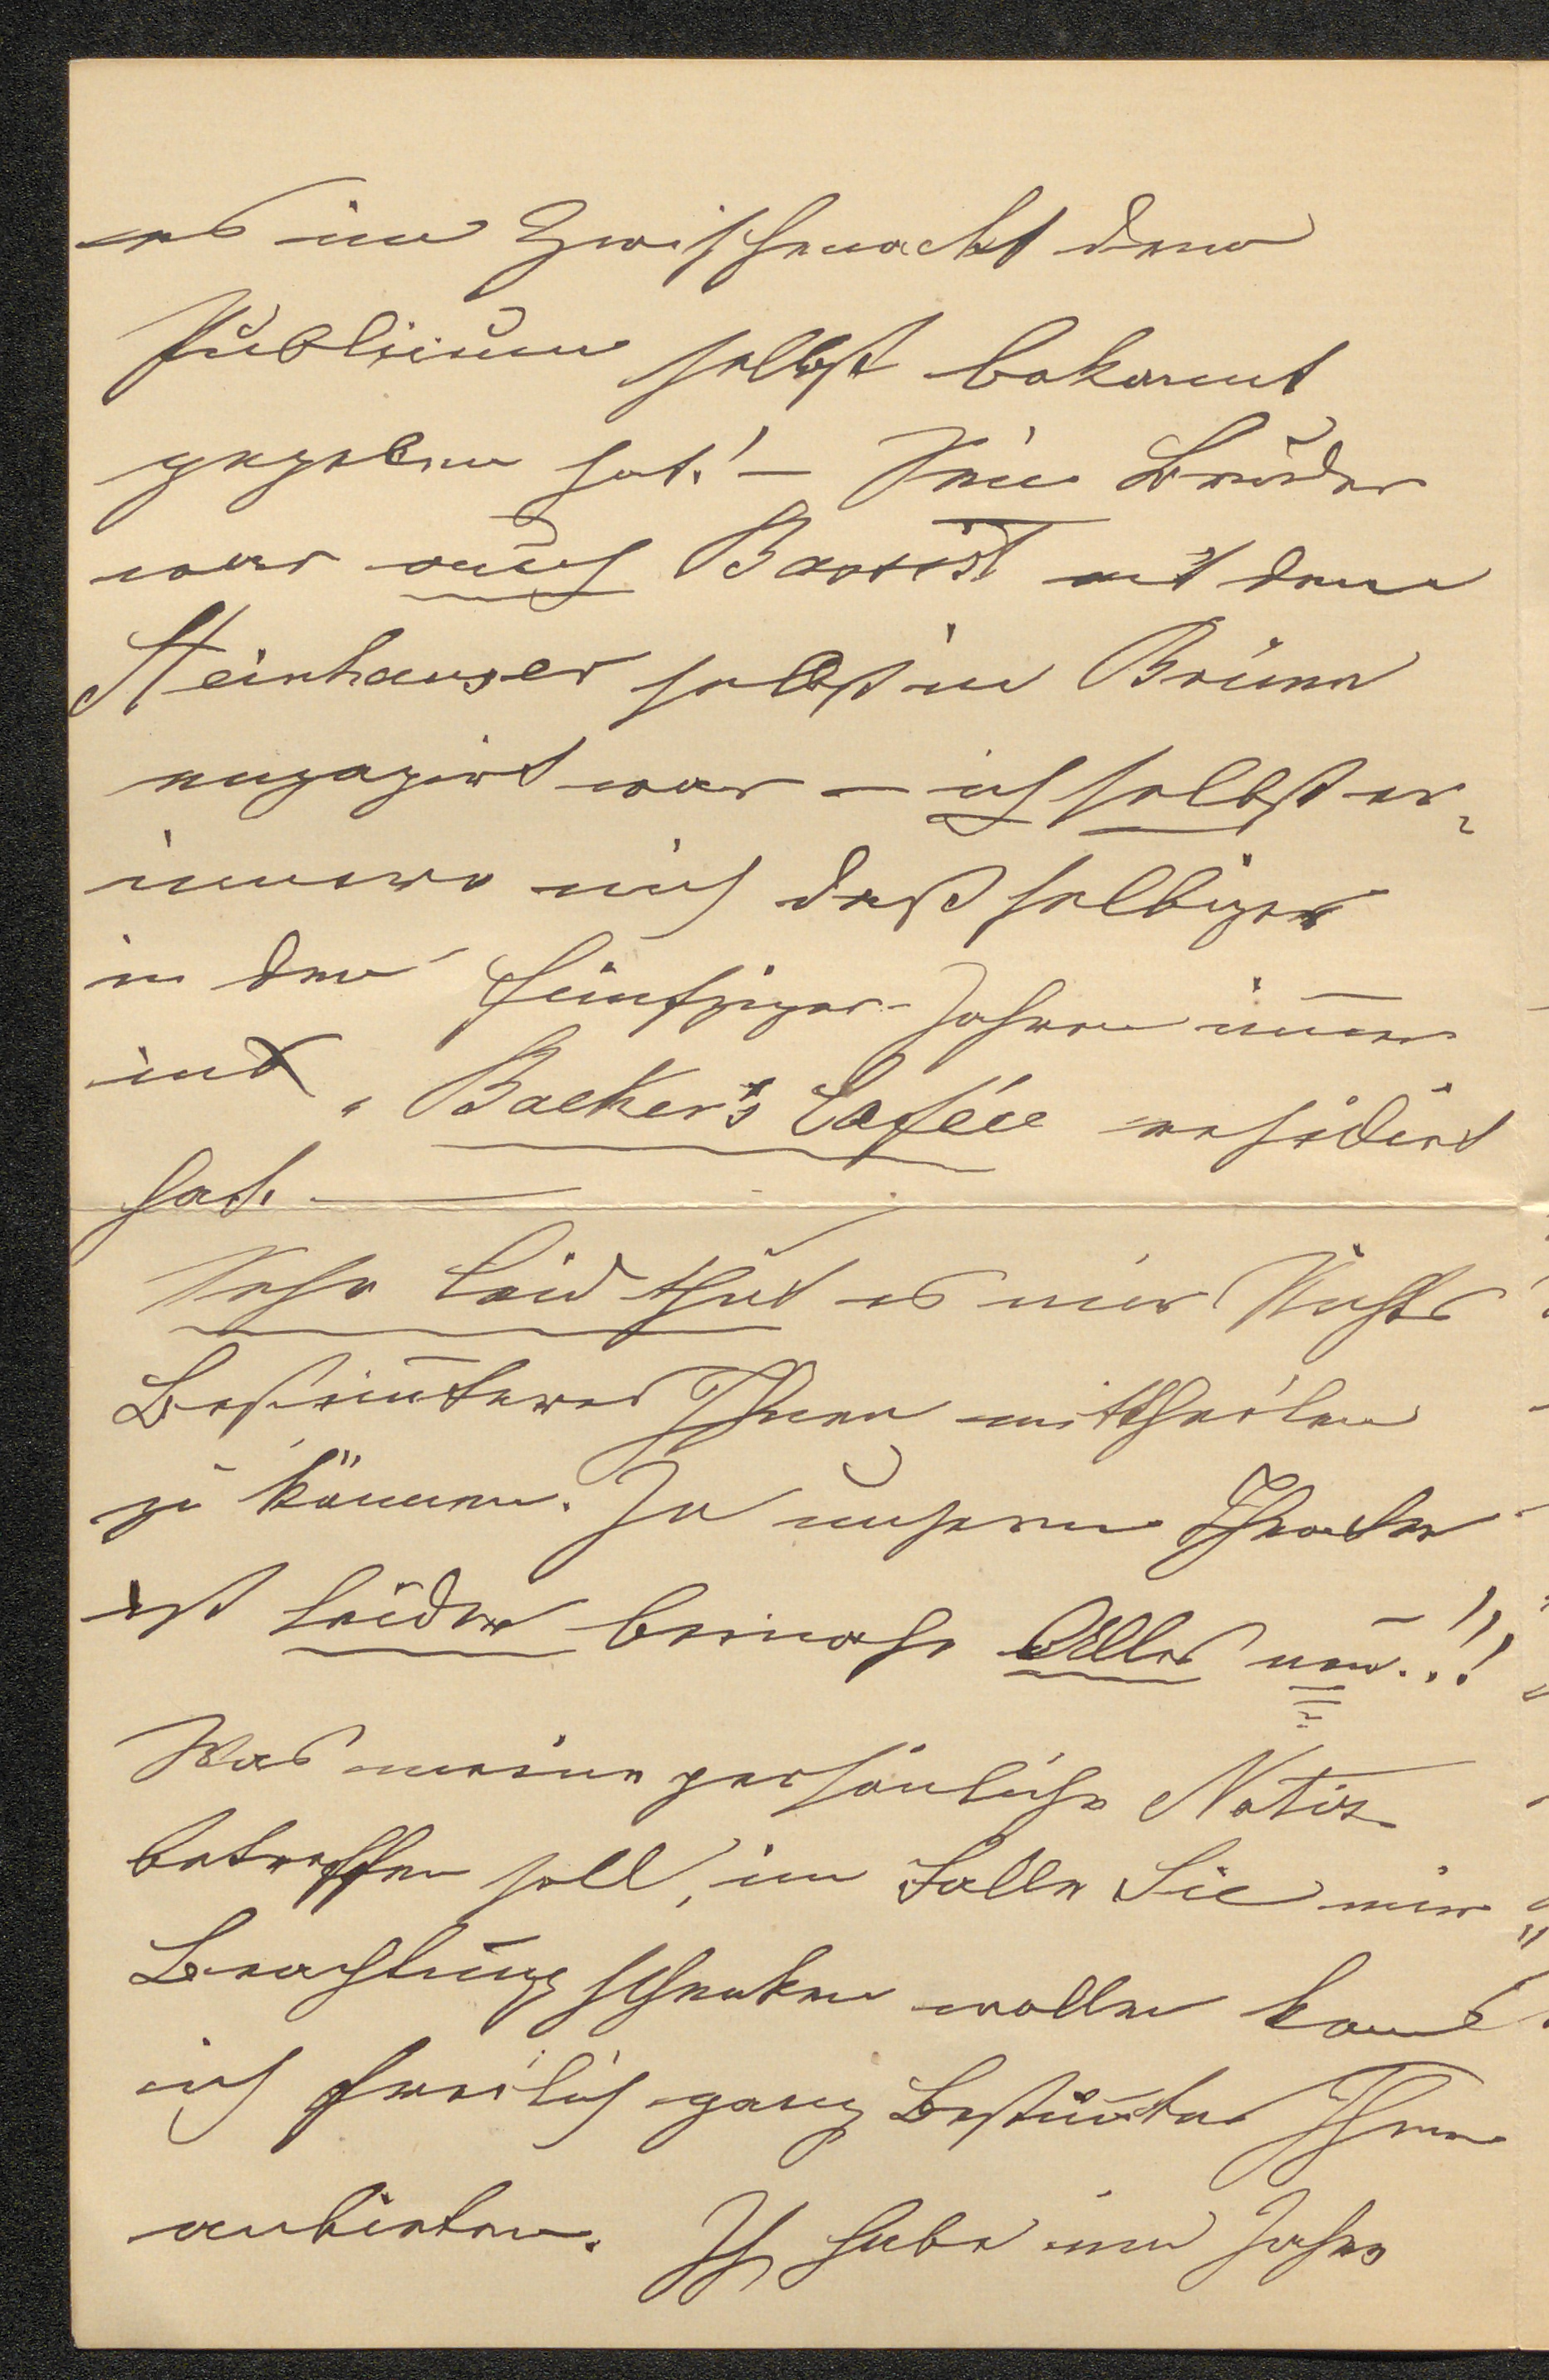 es im Zwischenact dem
Publicum selbst bekannt
gegeben hat! – Sein Bruder
war auch Bassist mit dem
Steinhauser selbst in Brünn
engagirt war – ich selbst er-
innere mich daß selbiger
in den fünfziger-Jahren im̄er
in „Backer's Caféee residirt
hat. —
Sehr leid thut es mir Nichts
Bestim̄teres Ihnen mittheilen
zu können. In unserem Theater
ist leider beinahe Alles neu..!!!
Was meine persönliche Notiz
betreffen soll, im Falle Sie mir
Beachtung schenken wollen kann
ich freilich ganz Bestim̄tes Ihnen
anbieten. Ich habe im Jahre